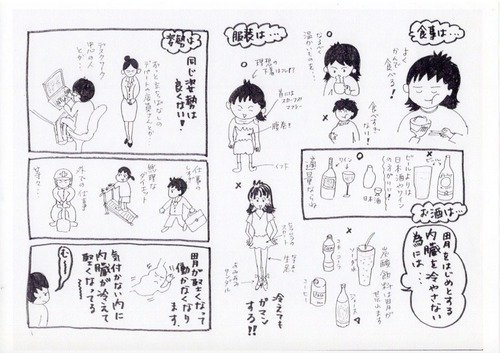 食事は…
よく
かんで
食べる!
なるべく
温かいものを…
食べすぎ
ない!
胃をはじめとする
内臓を冷やさない
為には…
お酒は…
ビールよりは
日本酒やワイン
ワイン
日本酒
適量なら
コーラ
ソーダ
コーヒー
ジュース
服装は…
理想の
首には
スカーフか
マフラー
腹巻き
生足
冷えても
ガマン
する!!
姿勢は…
同じ姿勢は
良くない!
デスクワーク
中心の人
とか…
立ちっぱなしの
デパートの店員さんとか
無理な
ダイエット
外での仕事
等々…
胃が堅くなって
働かなくなり
ます。
気付かない内に
内臓が冷えて
堅くなってる